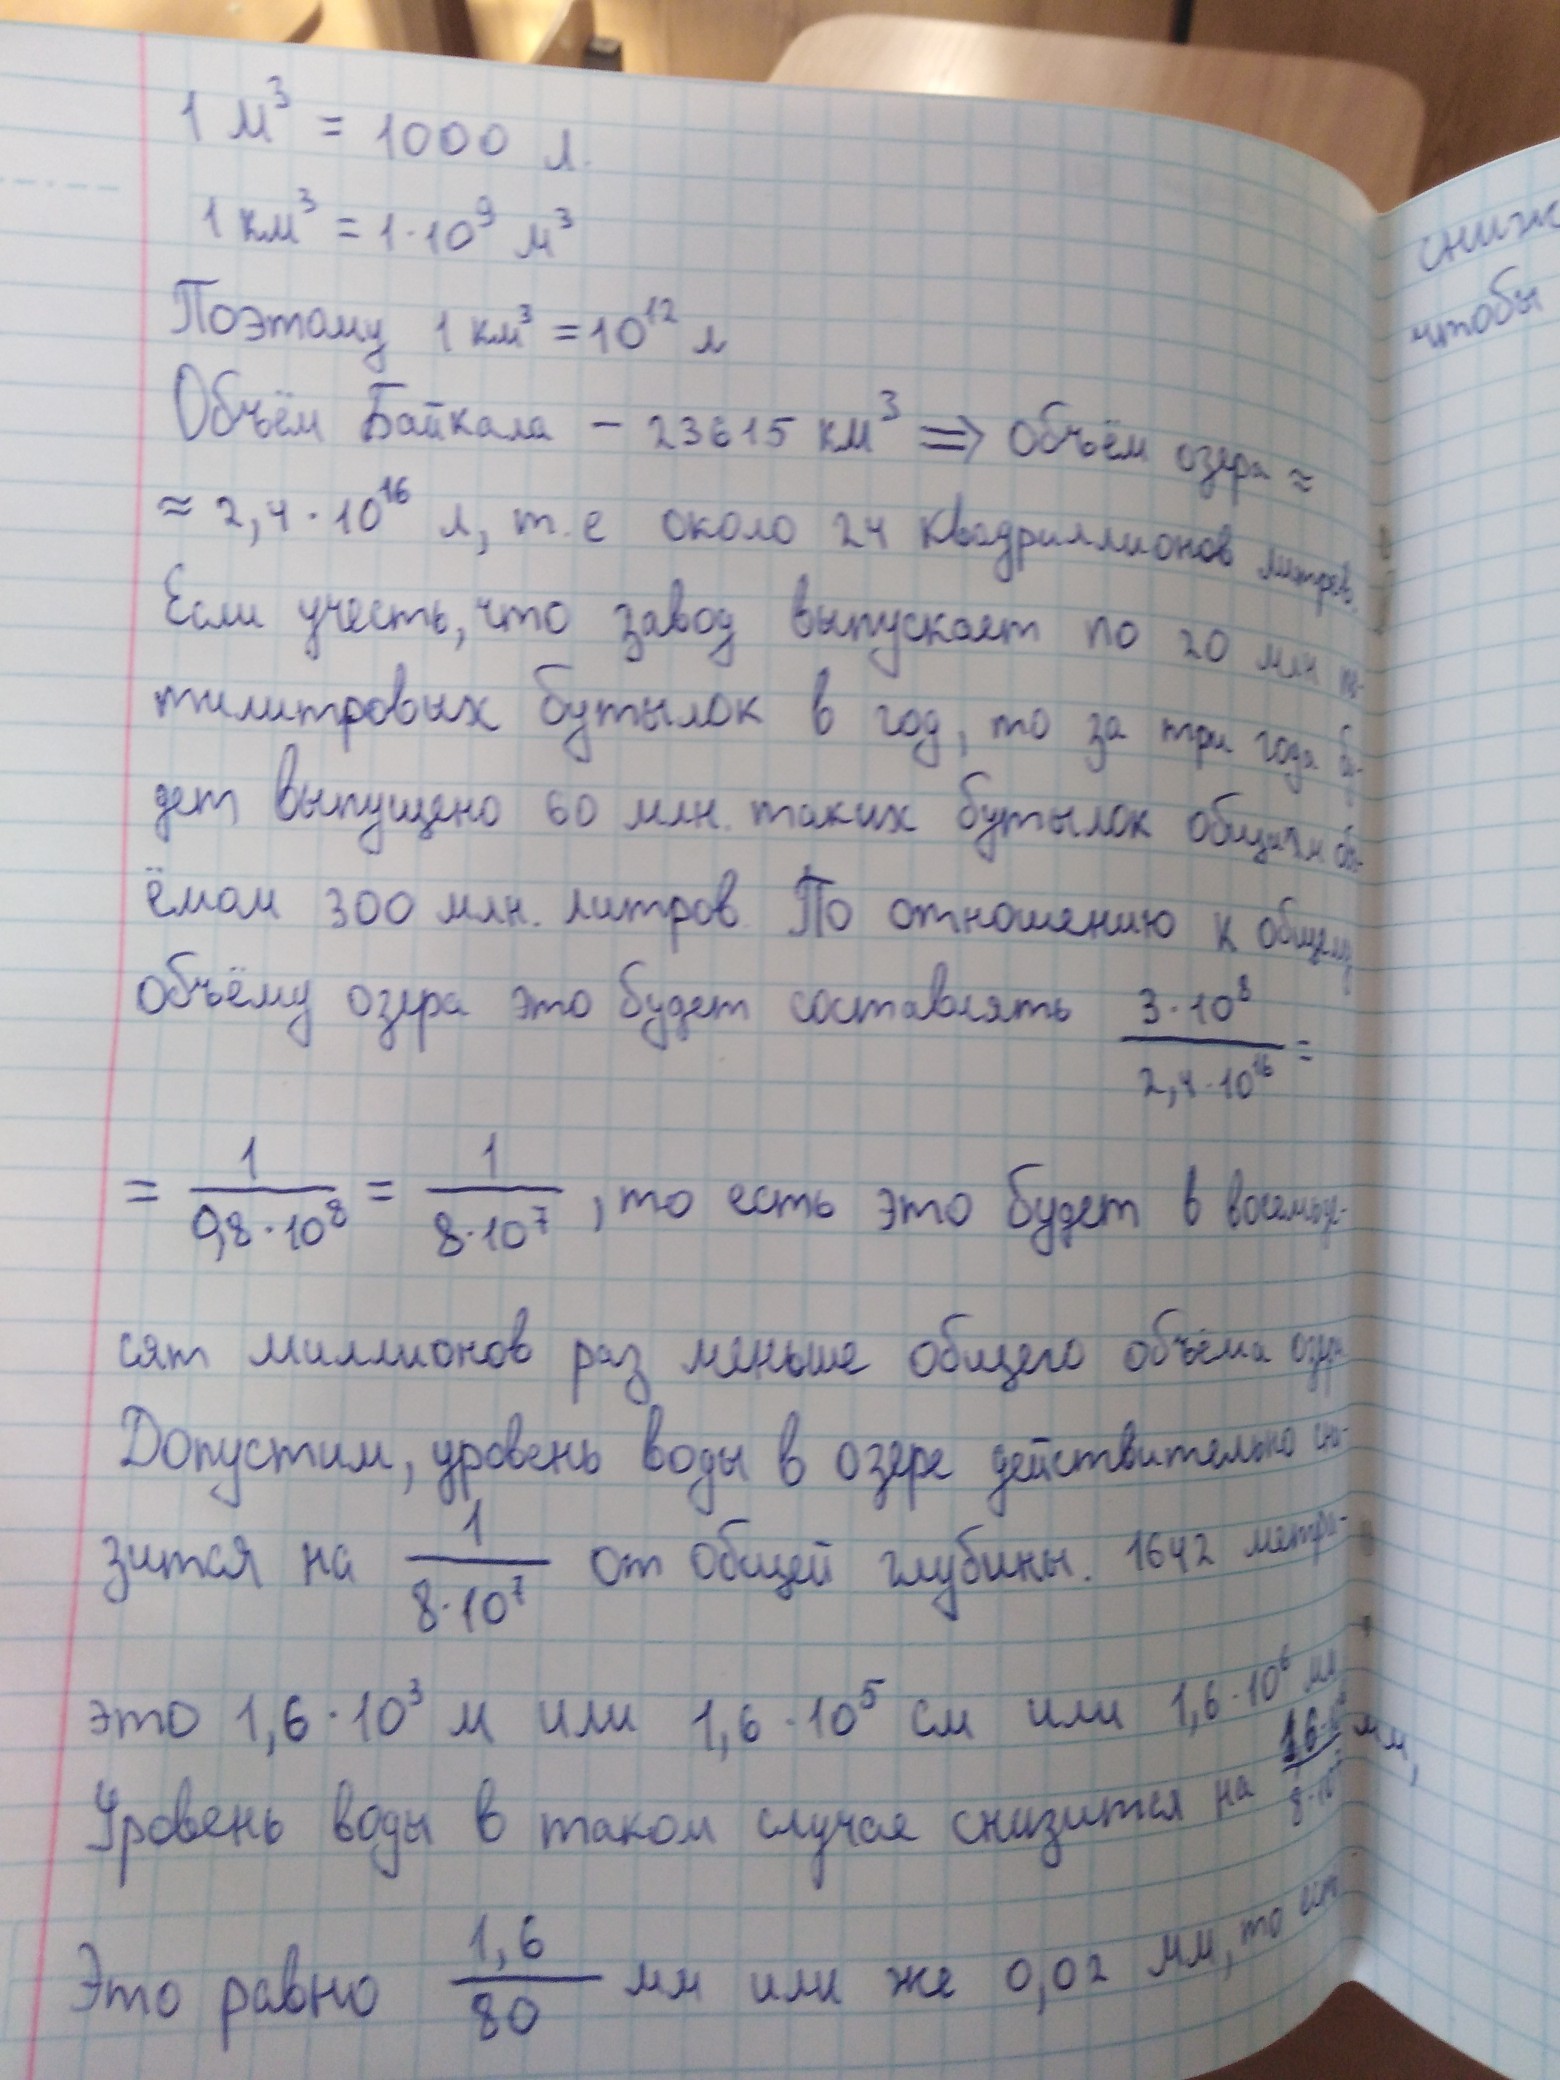 1 м³ = 1000 л.
1 км³ = 1·10⁹ м³
Поэтому 1 км³ = 10¹² л
Объём Байкала – 23615 км³ ⇒ объём озера ≈
≈ 2,4·10¹⁶ л, т.е около 24 квадриллионов литров.
Если учесть, что завод выпускает по 20 млн пя-
тилитровых бутылок в год, то за три года бу-
дет выпущено 60 млн. таких бутылок общим объ-
ёмом 300 млн. литров. По отношению к общему
объёму озера это будет составлять 3·10⁸/2,4·10¹⁶ =
= 1/0,8·10⁸ = 1/8·10⁷, то есть это будет в восемьде-
сят миллионов раз меньше общего объёма озера
Допустим, уровень воды в озере действительно сни-
зится на 1/8·10⁷ от общей глубины. 1642 метра -
это 1,6·10³ м или 1,6·10⁵ см или 1,6·10⁶ мм
Уровень воды в таком случае снизится на 1,6·10⁶/8·10⁷ мм,
Это равно 1,6/80 мм или же 0,02 мм, то ест
сниж
чтобы